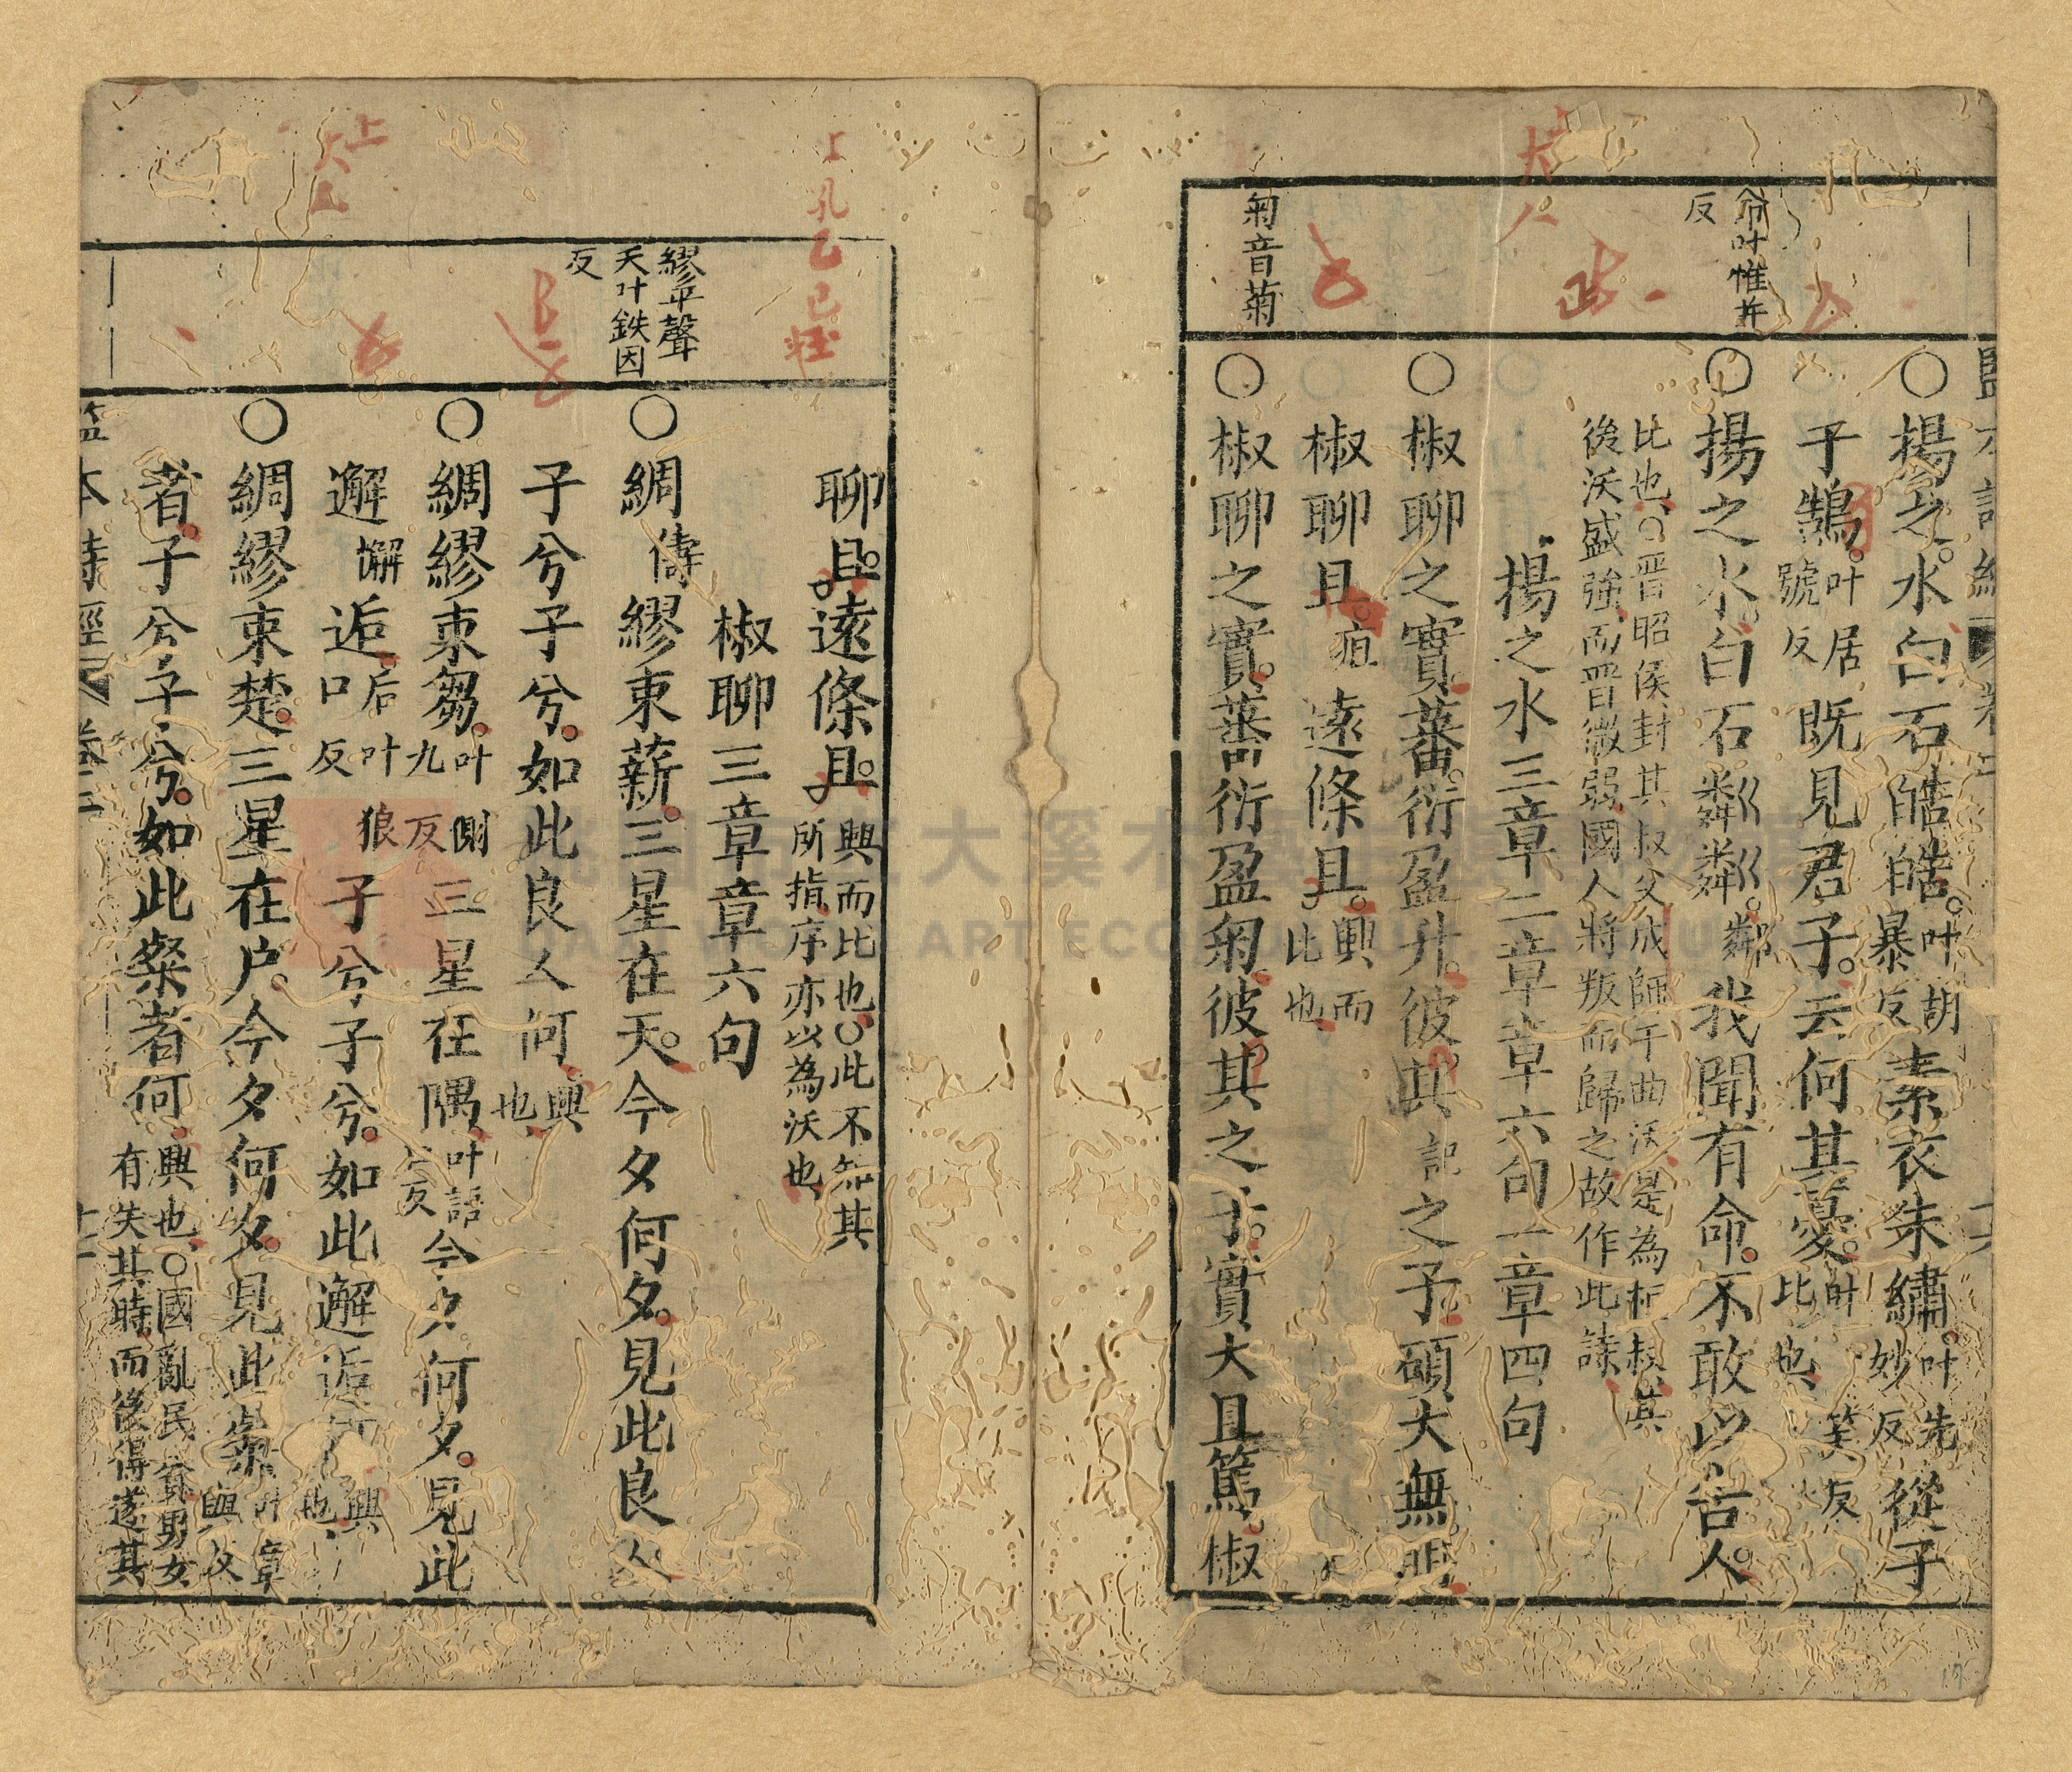 粦叶惟并
反
匊音菊
○揚之水白石皓皓叶胡暴反素衣朱繡叶先妙反從子
于鵠叶居號反既見君子云何其憂叶笑反比也
○揚之水白石粼粼鄰我聞有命不敢以告人
比也○晋昭侯封其叔父成師于曲沃是為桓叔其
後沃盛強而晋微弱國人將叛而歸之故作此詩
揚之水三章二章章六句一章四句
○椒聊之實蕃衍盈升彼其記之子碩大無朋
椒聊且疽遠條且興而比也
○椒聊之實蕃衍盈匊彼其之子實大且篤椒
繆平聲
天叶鉄因
反
聊且遠條且興而比也○此不知其所指序亦以為沃也
椒聊三章章六句
○綢儔繆束薪三星在天今夕何夕見此良人
子兮子兮如此良人何興也
○綢繆束芻叶側九反三星在隅叶語口反今夕何夕見此
邂懈逅叶狼口反子兮子兮如此邂逅何興也
○綢繆束楚三星在户今夕何夕見此粲叶章與反
者子兮子兮如此粲者何興也○國亂民貧男女
有失其時而後得遂其